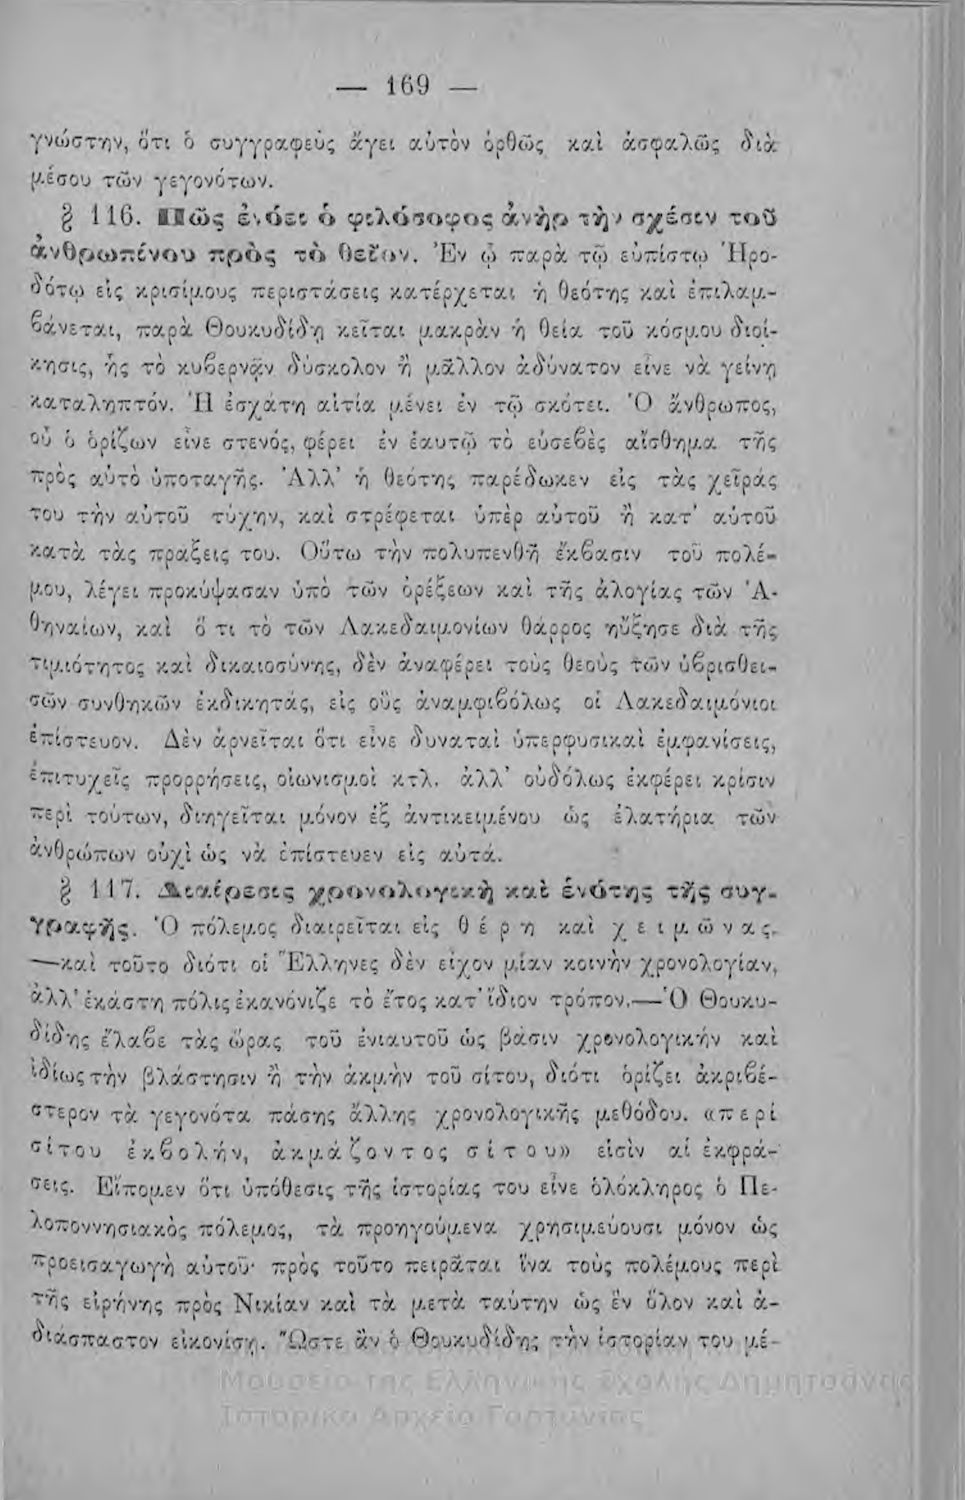 — 169 —
γνώστην, ὅτι ὁ συγγραφεὺς ἄγει αὐτὸν ὀρθῶς καὶ ἀσφαλῶς διὰ
μέσου τῶν γεγονότων.
§ 116. Πῶς ἐνόει ὁ φιλόσοφος ἀνὴρ τὴν σχέσιν τοῦ
ἀνθρωπίνου πρὸς τὸ θεῖον. Ἐν ᾧ παρὰ τῷ εὐπίστῳ Ἡρο-
δότῳ εἰς κρισίμους περιστάσεις κατέρχεται ἡ θεότης καὶ ἐπιλαμ-
βάνεται, παρὰ Θουκυδίδῃ κεῖται μακρὰν ἡ θεία τοῦ κόσμου διοί-
κησις, ἧς τὸ κυβερνᾷν δύσκολον ἢ μᾶλλον ἀδύνατον εἶνε νὰ γείνῃ
καταληπτόν. Ἡ ἐσχάτη αἰτία μένει ἐν τῷ σκότει. Ὁ ἄνθρωπος,
οὗ ὁ ὁρίζων εἶνε στενός, φέρει ἐν ἑαυτῷ τὸ εὐσεβὲς αἴσθημα τῆς
πρὸς αὐτὸ ὑποταγῆς. Ἀλλ’ ἡ θεότης παρέδωκεν εἰς τὰς χεῖράς
του τὴν αὑτοῦ τύχην, καὶ στρέφεται ὑπὲρ αὐτοῦ ἢ κατ’ αὐτοῦ
κατὰ τὰς πράξεις του. Οὕτω τὴν πολυπενθῆ ἔκβασιν τοῦ πολέ-
μου, λέγει προκύψασαν ὑπὸ τῶν ὀρέξεων καὶ τῆς ἀλογίας τῶν Ἀ-
θηναίων, καὶ ὅ τι τὸ τῶν Λακεδαιμονίων θάρρος ηὔξησε διὰ τῆς
τιμιότητος καὶ δικαιοσύνης, δὲν ἀναφέρει τοὺς θεοὺς τῶν ὑβρισθει-
σῶν συνθηκῶν ἐκδικητάς, εἰς οὓς ἀναμφιβόλως οἱ Λακεδαιμόνιοι
ἐπίστευον. Δὲν ἀρνεῖται ὅτι εἶνε δυναταὶ ὑπερφυσικαὶ ἐμφανίσεις,
ἐπιτυχεῖς προρρήσεις, οἰωνισμοὶ κτλ. ἀλλ’ οὐδόλως ἐκφέρει κρίσιν
περὶ τούτων, διηγεῖται μόνον ἐξ ἀντικειμένου ὡς ἐλατήρια τῶν
ἀνθρώπων οὐχὶ ὡς νὰ ἐπίστευεν εἰς αὐτά.
§ 117. Διαίρεσις χρονολογικὴ καὶ ἑνότης τῆς συγ-
γραφῆς. Ὁ πόλεμος διαιρεῖται εἰς θέρη καὶ χειμῶνας.
—καὶ τοῦτο διότι οἱ Ἕλληνες δὲν εἶχον μίαν κοινὴν χρονολογίαν,
ἀλλ’ ἑκάστη πόλις ἐκανόνιζε τὸ ἔτος κατ’ ἴδιον τρόπον.—Ὁ Θουκυ-
δίδης ἔλαβε τὰς ὥρας τοῦ ἐνιαυτοῦ ὡς βάσιν χρονολογικὴν καὶ
ἰδίως τὴν βλάστησιν ἢ τὴν ἀκμὴν τοῦ σίτου, διότι ὁρίζει ἀκριβέ-
στερον τὰ γεγονότα πάσης ἄλλης χρονολογικῆς μεθόδου. «περὶ
σίτου ἐκβολήν, ἀκμάζοντος σίτου» εἰσὶν αἱ ἐκφρά-
σεις. Εἴπομεν ὅτι ὑπόθεσις τῆς ἱστορίας του εἶνε ὁλόκληρος ὁ Πε-
λοποννησιακὸς πόλεμος, τὰ προηγούμενα χρησιμεύουσι μόνον ὡς
προεισαγωγὴ αὐτοῦ· πρὸς τοῦτο πειρᾶται ἵνα τοὺς πολέμους περὶ
τῆς εἰρήνης πρὸς Νικίαν καὶ τὰ μετὰ ταύτην ὡς ἓν ὅλον καὶ ἀ-
διάσπαστον εἰκονίσῃ. Ὥστε ἂν ὁ Θουκυδίδης τὴν ἱστορίαν του μέ-
Μουσείο της Ελληνικής Σχολής Δημητσάνας
Ιστορικό Αρχείο Γορτυνίας